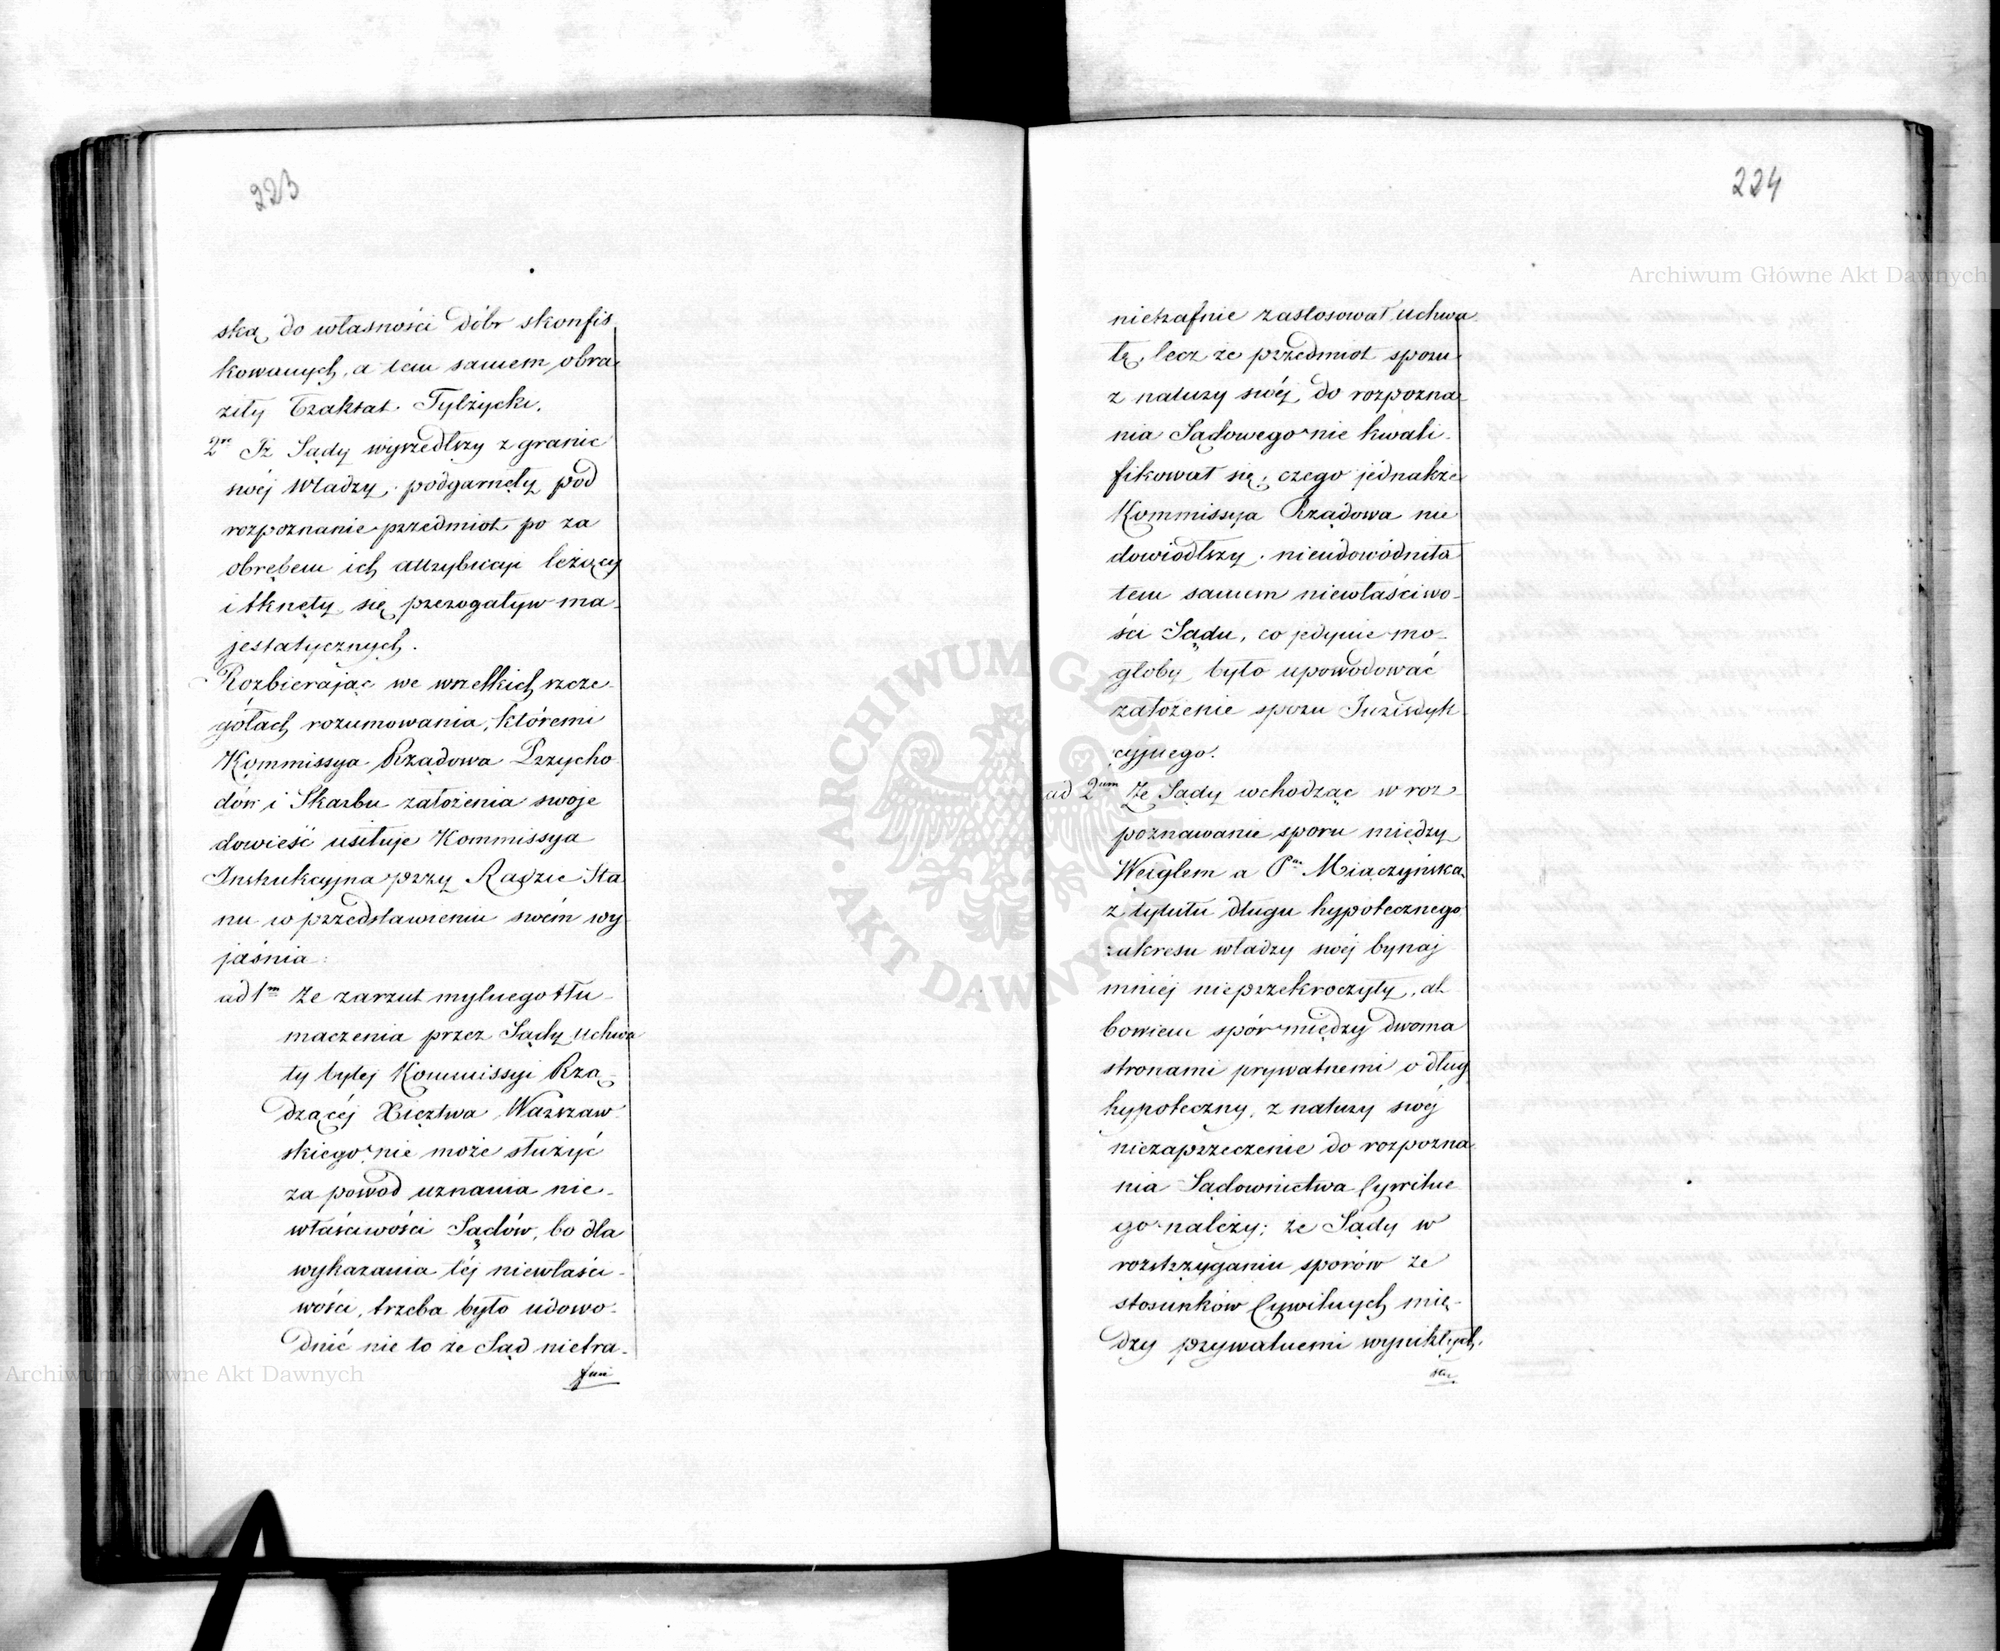 223
ską do własności dóbr skonfis
kowanych, a tem samem obra
ziły Traktat Tylżycki.
2re Iż Sądy wyszedłszy z granic
swéj Władzy, podgarnęły pod
rozpoznanie przedmiot po za
obrębem ich attrybucyi leżący
i tknęły się prerogatyw ma-
jestatycznych.
Rozbierając we wszelkich szcze-
gółach rozumowania, któremi
Kommissya Rządowa Przycho
dów i Skarbu założenia swoje
dowieść usiłuje Kommissya
Instrukcyjna przy Radzie Sta
nu w przedstawieniu swém wy
jaśnia:
ad 1m Że zarzut mylnego tłu-
maczenia przez Sądy Uchwa
ły byłej Kommissyi Rzą-
dzącéj Xięztwa Warszaw-
skiego nie może służyć
za powod uznania nie-
właściwości Sądów, bo dla
wykazania téj niewłaści-
wości, trzeba było udowo-
dnić nie to że Sąd nietra-
fnie
224
nietrafnie zastosował Uchwa
łę, lecz że przedmiot sporu
z natury swéj do rozpozna
nia Sądowego nie kwali-
fikował się, czego jédnakże
Kommissyja Rządowa nie
dowiódłszy, nieudowodniła
tem samem niewłaściwo-
ści Sądu, co jedynie mo-
głoby było upowodować
założenie sporu Jurisdyk
cyjnego.
ad 2um Że Sądy wchodząc w roz-
poznawanie sporu między
Weiglem a Miączyńska
z tytułu długu hypotecznego
zakresu władzy swéj bynaj
mniéj nieprzekroczyły, al
bowiem spór między dwoma
stronami prywatnemi o dług
hypoteczny, z natury swéj
niezaprzeczenie do rozpozna
nia Sądownictwa Cywilne
go należy; że Sądy w
rozstrzyganiu sporów ze
stosunków Cywilnych mię-
dzy prywatnemi wynikłych,
Archiwum Główne Akt Dawnych
Archiwum Główne Akt Dawnych
ARCHIWUM GŁÓWNE AKT DAWNYCH